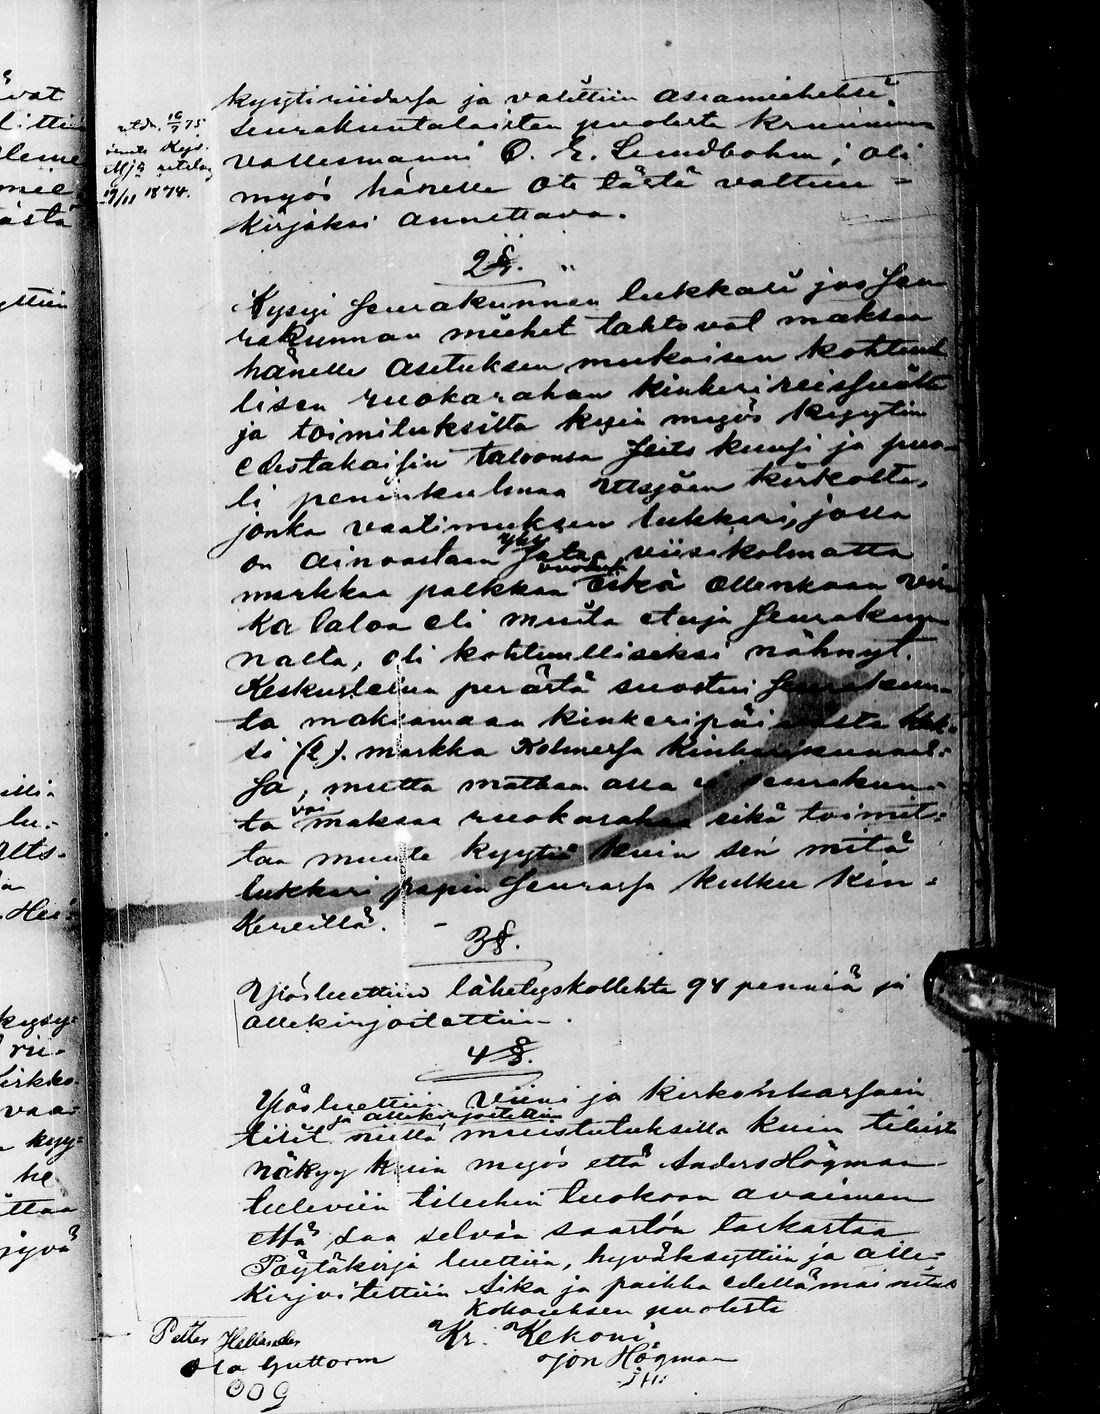 kyytiriidassa ja valittiin asiamieheksi
seurakuntalaisten puolesta kruunun
vallesmanni O. E. Lundbohm; oli
myös hänelle ote tästä valtuu=
kirjaksi annettava.
2 §.
Kysyi seurakunnan lukkari jos Seu
rakunnan miehet tahtovat maksaa
hänelle asetuksen mukaisen kohtuul
lisen ruokarahan kinkerireissuilta
ja toimituksilta kuin myös kyytin
edestakaisin taloonsa Seits kuusi ja puo
li peninkulmaa Utsjoen kirkolta,
jonka vaatimuksen lukkari, jolla
on ainoastaan yksi Sataa viisikolmatta
vuodelta
markkaa palkkaa eikä ollenkaan vir
ka taloa eli muita etuja Seurakun
nalta, oli kohtuulliseksi nähnyt.
Keskustelun perästä suostui Seurakun
ta maksamaan kinkeripäivästä kak=
si (2) markka Kolmessa kinkerikunnas=
Sa, mutta matkan alla ei seurakun=
ta voi maksaa ruokarahaa eikä toimit=
taa muuta kyytiä kuin sen mitä
lukkari papin seurassa kulkee kin=
kereillä.
3 §.
Ylösluettiin lähetyskollehta 94 penniä ja
allekirjoitettiin.
4 §.
Ylösluettiin viini ja kirkonkassain
ja allekirjoitettiin
tilit niillä muistutuksilla kuin tilistä
näkyy kuin myös että Anders Högman
tuleviin tileihin tuokoon avaimen
että saa selvän saastön tarkastaa
Pöytäkirja luettiin, hyväksyttiin ja alle=
kirjoitettiin Aika ja paikka edellämainitus
Kokouksen puolesta
Kr. Kekoni.
Petter Hellander
Jon Högman
Ola Guttorm
J H:
O O G